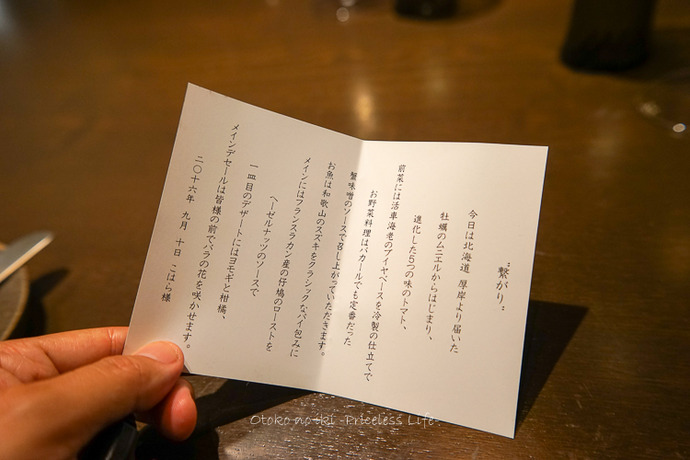 "繋がり"
今日は北海道 厚岸より届いた
牡蠣のムニエルからはじまり、
進化した5つの味のトマト、
前菜には活車海老のブイヤベースを冷製の仕立てで
お野菜料理はバカールでも定番だった
蟹味噌のソースで召し上がっていただきます。
お魚は和歌山のスズキをクラシックなパイ包みに
メインにはフランスラカン産の仔鳩のローストを
ヘーゼルナッツのソースで
一皿目のデザートにはヨモギと柑橘、
メインデセールは皆様の前でバラの花を咲かせます。
二〇十六年 九月 十日 こはら様
Otoko no iki -Priceless Life